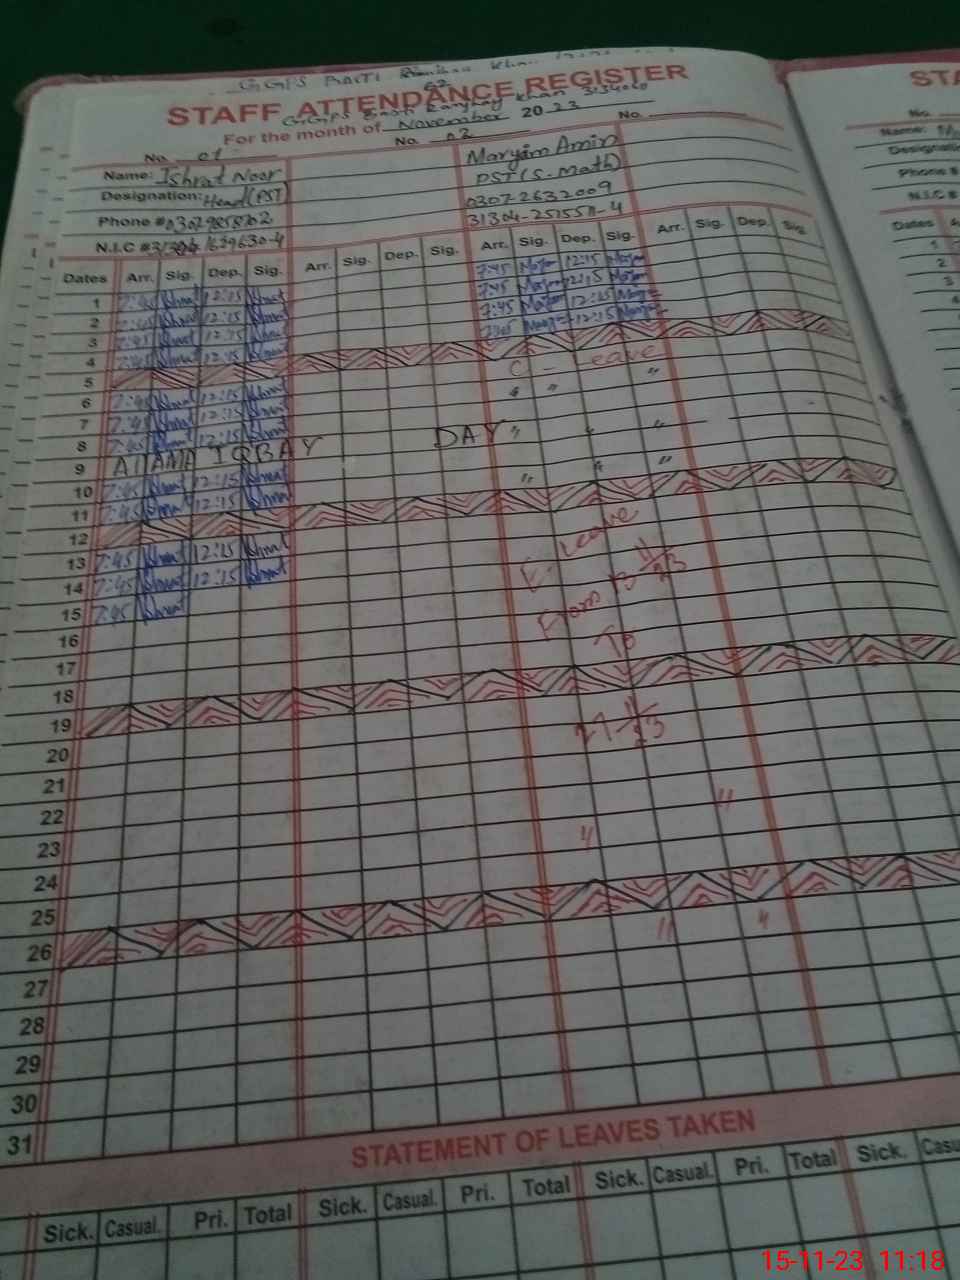 GGPS
STAFF ATTENDANCE REGISTER
For the month of November 2023
No. 01 No. 02 No.
Name: Ishrat Noor Maryam Amin
Designation: Head (PST) PST (S-Math)
Phone # 0307-2632009
N.I.C #
Dates Arr. Sig. Dep. Sig. Arr. Sig. Dep. Sig. Arr. Sig. Dep. Sig. Arr. Sig. Dep. Sig.
1 7:45 Ishrat 12:15 Ishrat 7:45 Maryam 12:15 Maryam
2 7:45 Ishrat 12:15 Ishrat 7:45 Maryam 12:15 Maryam
3 7:45 Ishrat 12:15 Ishrat 7:45 Maryam 12:15 Maryam
4 7:45 Ishrat 12:15 Ishrat 7:45 Maryam 12:15 Maryam
5
6 7:45 Ishrat 12:15 Ishrat C - Leave
7 7:45 Ishrat 12:15 Ishrat " " "
8 7:45 Ishrat 12:15 Ishrat
9 ALLAMA IQBAY DAY " " "
10 7:45 Ishrat 12:15 Ishrat
11 7:45 Ishrat 12:15 Ishrat " " "
12
13 7:45 Ishrat 12:15 Ishrat E. Leave
14 7:45 Ishrat 12:15 Ishrat
15 7:45 Ishrat From 13 11/23
16
17 To
18
19
20 27 11/23
21
22
23 " "
24
25
26
27 " "
28
29
30
31
STATEMENT OF LEAVES TAKEN
Sick. Casual. Pri. Total Sick. Casual. Pri. Total Sick. Casual. Pri. Total Sick.
STA
No.
Name:
Phone #
N.I.C #
Dates
1
2
3
4
15-11-23 11:18